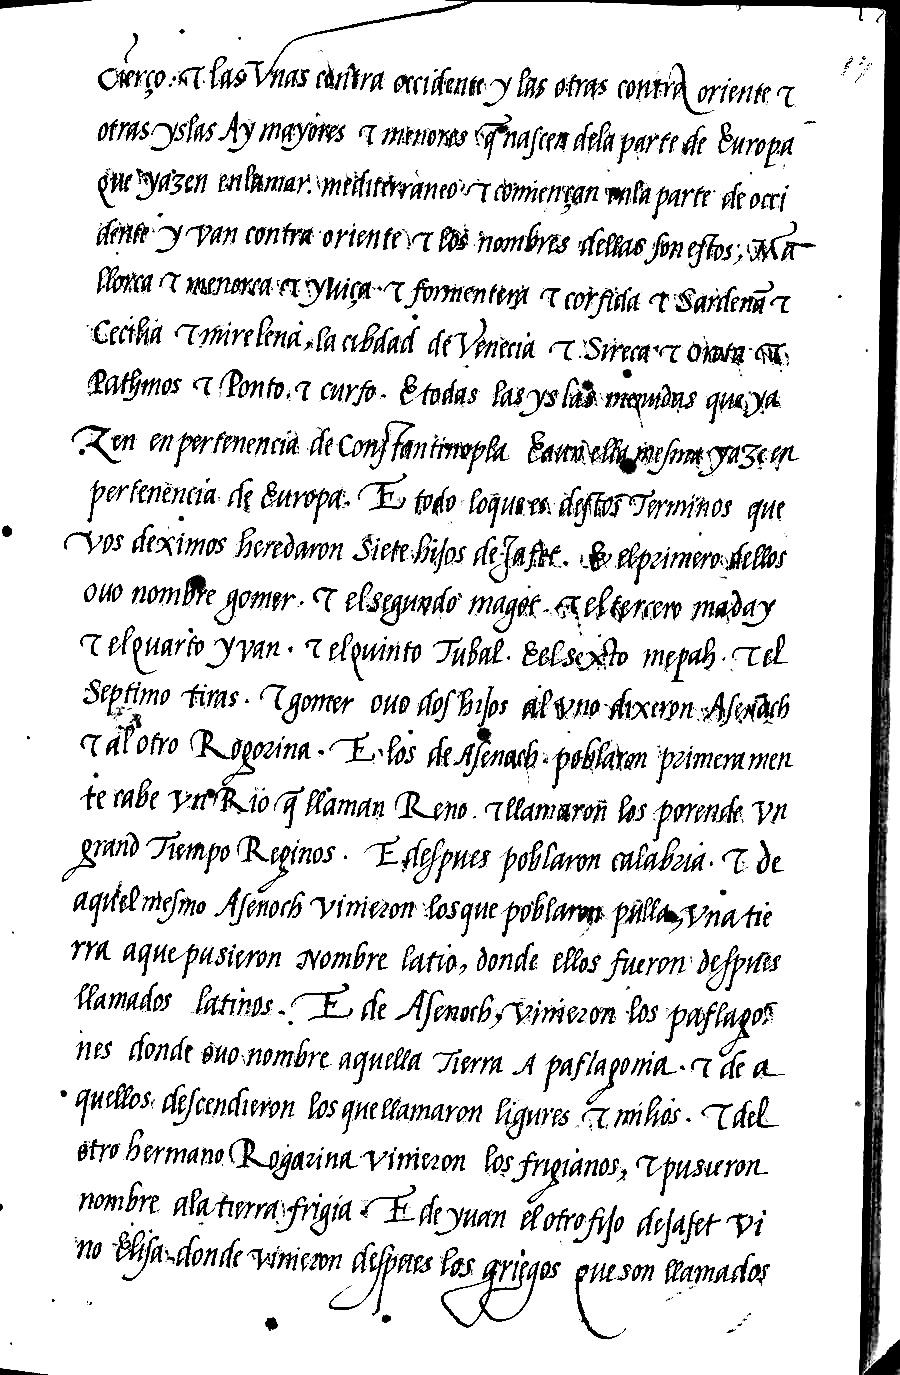 Cierço. τ las Vnas contra occidente y las otras contra oriente τ
otras yslas Ay mayores τ menores q̃ nascen dela parte de Europa
que yazen enlamar mediterraneo τ comiençan enla parte de occi
dente y van contra oriente τ los nombres dellas son estos, Ma
llorca τ menorca τ yviça τ formentera τ corsida τ Sardena τ
Cecilia τ mirelena, la cibdad de Venecia τ Sireca τ
Pathmos τ Ponto, τ curso. E todas las yslas menudas que ya
Zen en pertenencia de Constantinopla E aun ella mesma yazeen
pertenencia de Europa. E todo loque es destos Terminos que
vos deximos heredaron Siete hijos de Jafet. E elprimero dellos
ouo nombre gomer. τ elsegundo magot. τ eltercero maday
τ elquarto yvan. τ elquinto Tubal. E elsexto mepah. τ el
Septimo tiras. τ gomer ouo dos hijos al vno dixeron Asenach
τ al otro Rogorina. E los de Asenach poblaron primeramen
te cabe vn Rio q̃ llaman Reno. τ llamaron los porende vn
grand Tiempo Reginos. E despues poblaron calabria. τ de
aquel mesmo Asenoch vinieron losque poblaron pulla, vna tie
rra aque pusieron Nombre latio, donde ellos fueron despues
llamados latinos. E de Asenoch, vinieron los paflago
nes donde ouo nombre aquella Tierra A paflagonia. τ de a
quellos descendieron los quellamaron ligures τ milios. τ del
otro hermano Rogarina vinieron los frigianos, τ pusieron
nombre ala tierra frigia. E de yuan el otro fijo de Jafet vi
no Elisa donde vinieron despues los griegos que son llamados